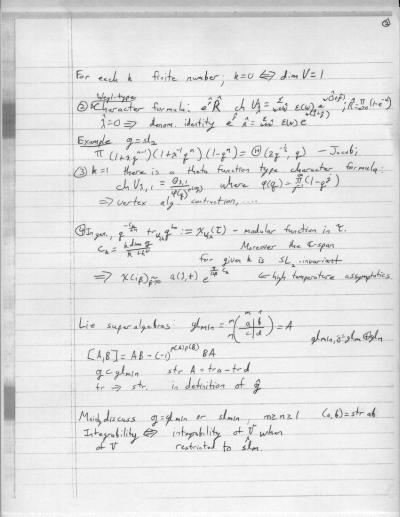 ②
For each k finite number; k=0 ⟺ dim V=1
Weyl-type
② Character formula: e^ρ̂ R̂ ch V_λ̂ = Σ_{w∈Ŵ} ε(w) e^{w(λ̂+ρ̂)}; R̂ = Π (1-e^{-α})
λ̂=0 ⟹ denom. identity e^ρ̂ R̂ = Σ_{w∈Ŵ} ε(w) e^{w(ρ̂)}
Example g=sl₂
Π(1+zq^{n-1})(1+z^{-1}q^n)(1-q^n) = Θ(zq^{-1/2}, q) - Jacobi
③ k=1 there is a theta function type character formula:
ch V_{λ,1} = Θ_{λ,1}/φ(q) where φ(q)=Π(1-q^j)
⟹ vertex alg. contruction, ....
④ In gen., q^{-c_k/24} tr q^{L_0} := χ(τ) - modular function in τ.
c_k = k dim g/(k+h^v) Moreover the ℂ-span
for given k is SL₂-invariant
⟹ χ(iβ) ~ a(λ,t) e^{π c_k/12β} ↳ high temperature assymptotics
Lie superalgebras gl_{m|n} = (a b / c d) = A gl_{m|n, 0} = gl_m ⊕ gl_n
[A,B] = AB - (-1)^{p(A)p(B)} BA
g ⊂ gl_{m|n} str A = tr a - tr d
tr ⟹ str. in definition of ĝ
Mainly discuss g=gl_{m|n} or sl_{m|n}, m≥n≥1 (a,b) = str ab
Integrability ⟺ integrability of V when
of V restricted to ŝl_m.